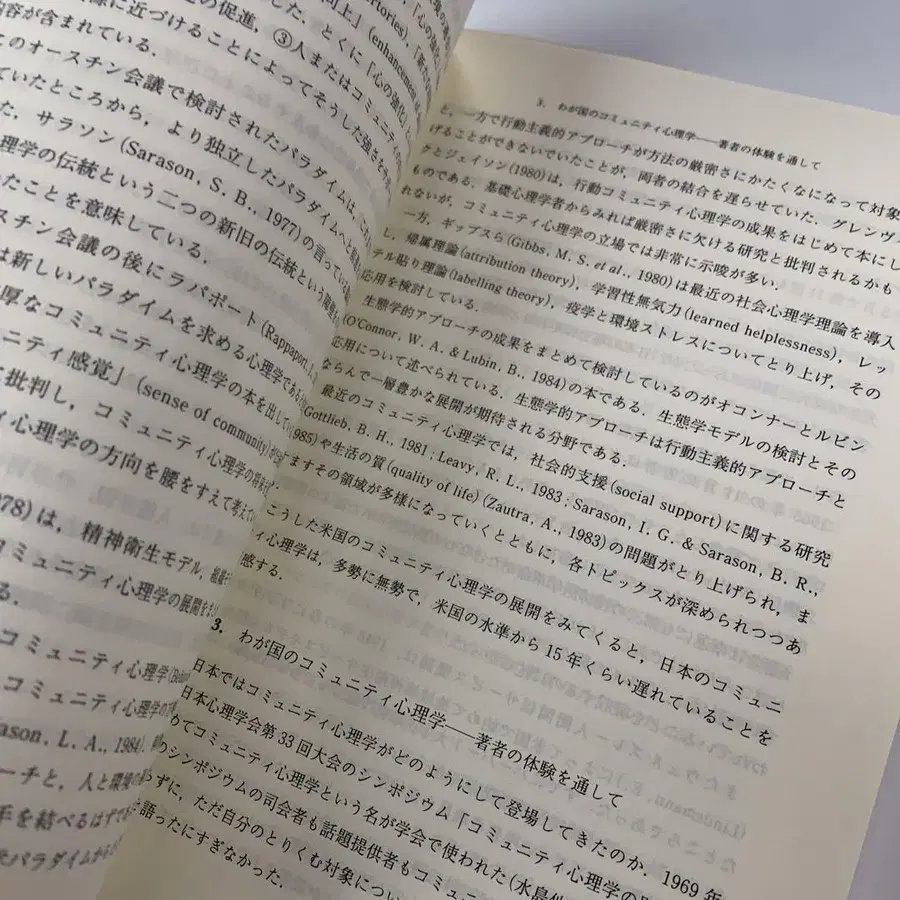 の促進，③人またはコミュニテ
際に近づけることによってそうした強さを
内容が含まれている．
このオースチン会議で検討されたパラダイムは，
ていたところから，より独立したパラダイムへと
た，サラソン(Sarason, S. B., 1977)の言っている
理学の伝統という二つの新旧の伝統という
ったことを意味している．
スチン会議の後にラパポート(Rappaport, J.,
は新しいパラダイムを求める心理学である
厚なコミュニティ心理学の本を出して
ニティ感覚」(sense of community)が
て批判し，コミュニティ心理学の将来
ィ心理学の方向を腰をすえて考えて
978)は，精神衛生モデル，組織
コミュニティ心理学の展開を
る．
コミュニティ心理学
コミュニティ心理学の
ason, L. A., 1984)．
ーチと，人と環境の
手を結べるはずで
パラダイムから
3. わが国のコミュニティ心理学――著者の体験を通して
と，一方で行動主義的アプローチが方法の厳密さにかたくなになって対象
げることができないでいたことが，両者の結合を遅らせていた．グレンヴ
クとジェイソン(1980)は，行動コミュニティ心理学の成果をはじめて本にし
ものである．基礎心理学者からみれば厳密さに欠ける研究と批判されるかも
れないが，コミュニティ心理学の立場では非常に示唆が多い．
一方，ギッブスら(Gibbs, M. S. et al., 1980)は最近の社会心理学理論を導入
し，帰属理論(attribution theory)，学習性無気力(learned helplessness)，レッ
テル貼り理論(labelling theory)，疫学と環境ストレスについてとり上げ，その
応用を検討している．
生態学的アプローチの成果をまとめて検討しているのがオコンナーとルビン
(O'Connor, W. A. & Lubin, B., 1984)の本である．生態学モデルの検討とその
応用について述べられている．生態学的アプローチは行動主義的アプローチと
ならんで一層豊かな展開が期待される分野である．
最近のコミュニティ心理学では，社会的支援(social support)に関する研究
(Gottlieb, B. H., 1981 ; Leavy, R. L., 1983 ; Sarason, I. G. & Sarason, B. R.,
1985)や生活の質(quality of life)(Zautra, A., 1983)の問題がとり上げられ，ま
すますその領域が多様になっていくとともに，各トピックスが深められつつあ
こうした米国のコミュニティ心理学の展開をみてくると，日本のコミュニ
ィ心理学は，多勢に無勢で，米国の水準から15年くらい遅れていることを
感する．
3. わが国のコミュニティ心理学――著者の体験を通して
日本ではコミュニティ心理学がどのようにして登場してきたのか．1969年
日本心理学会第33回大会のシンポジウム「コミュニティ心理学の
めてコミュニティ心理学という名が学会で使われた(水島
のシンポジウムの司会者も話題提供者もコミュニ
らずに，ただ自分のとりくむ対象につい
語ったにすぎなかった．